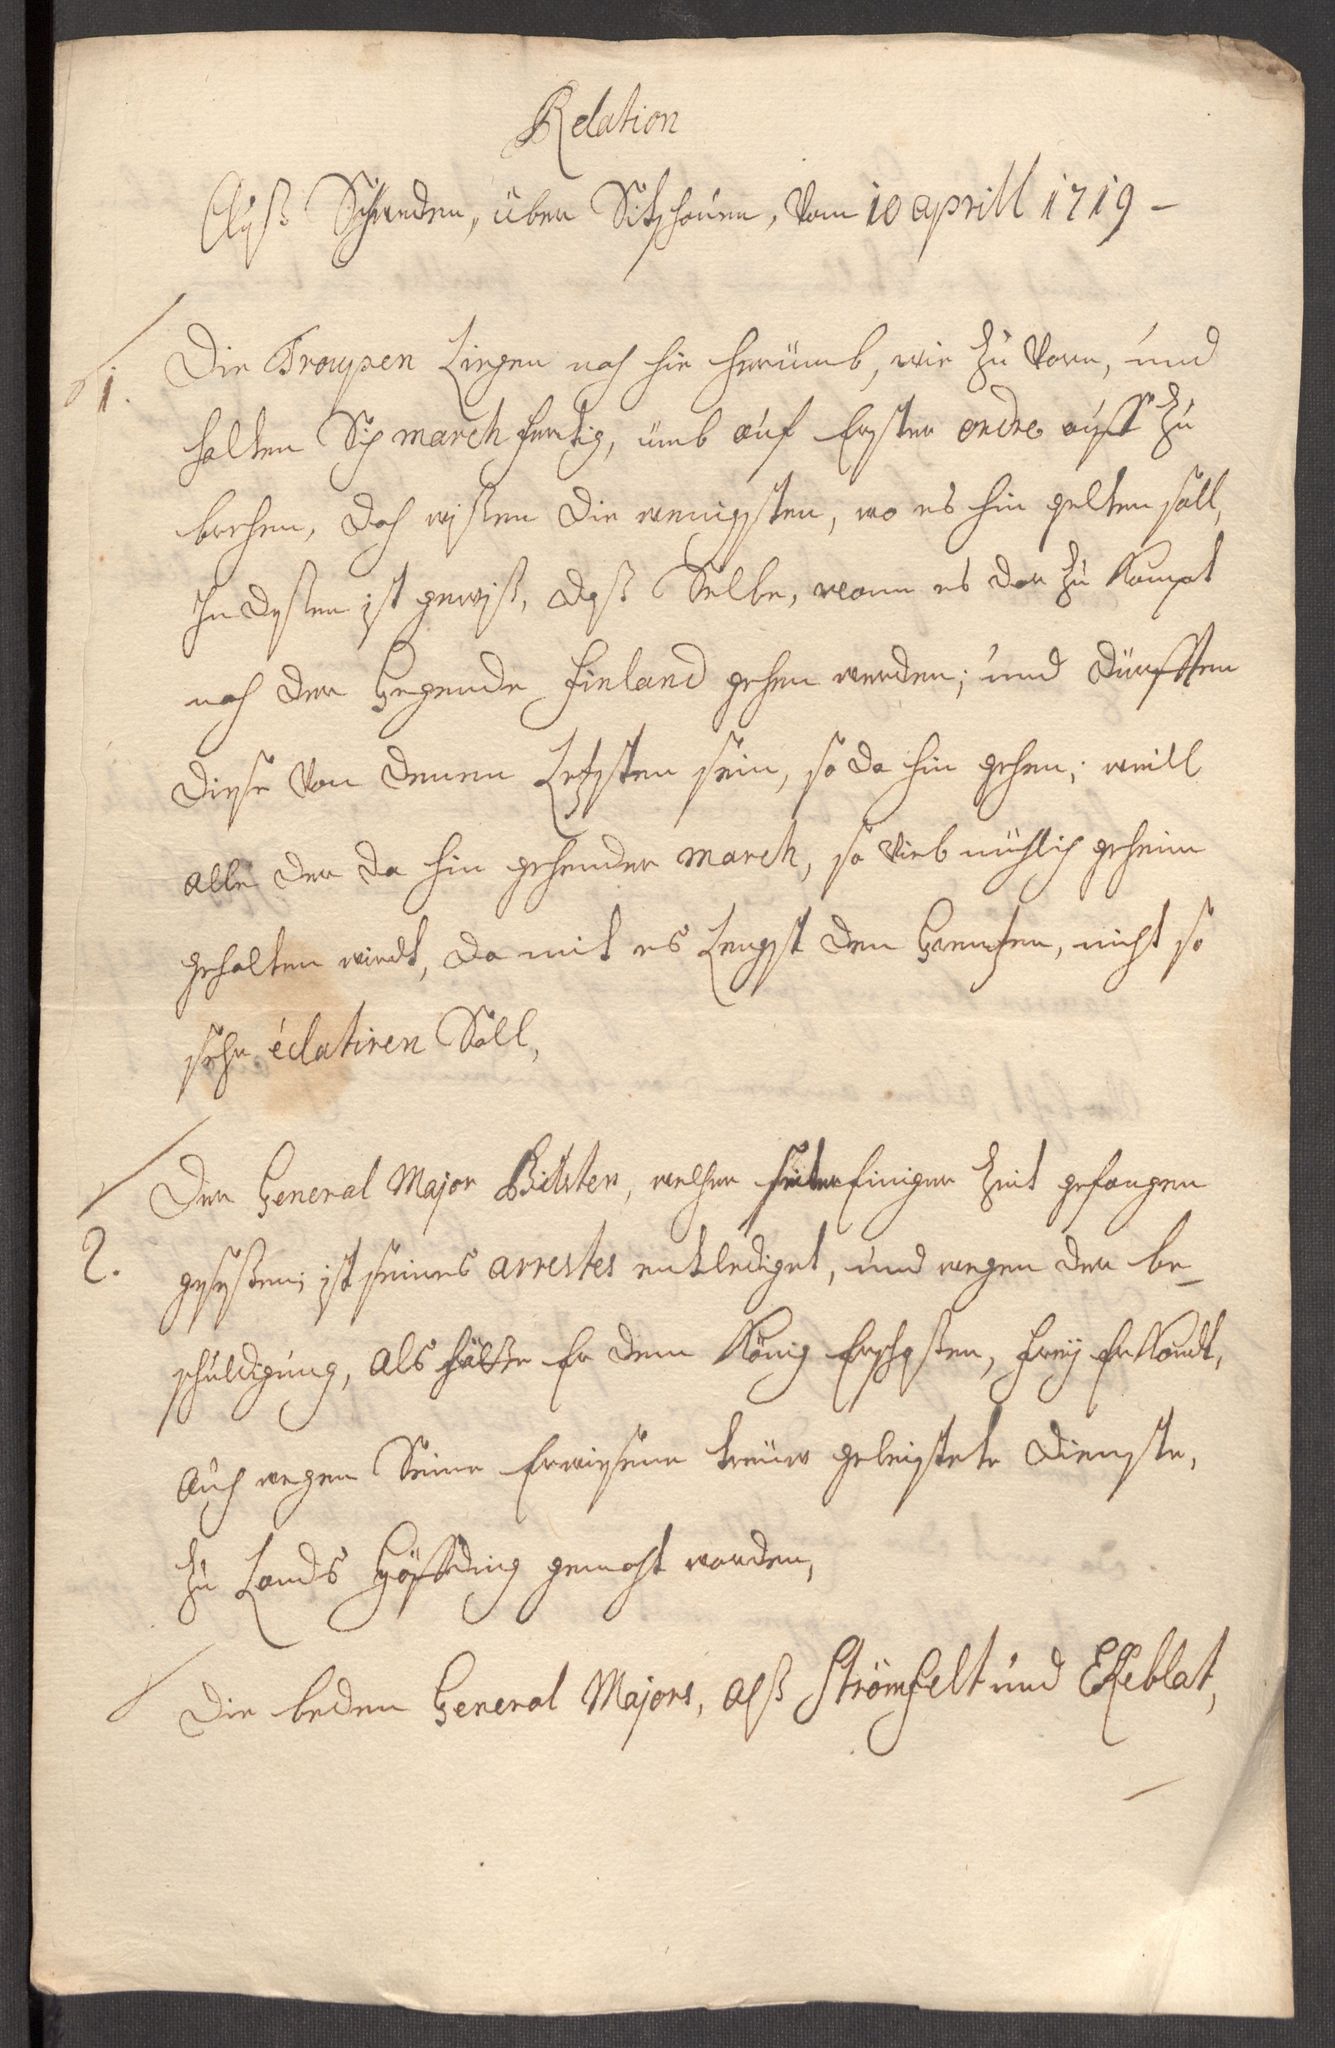 Relation
Auß Schweden, über Sitzhauen, vom 10 aprill 1719 –
1. Die Trouppen Liegen noch hie herümb, wie zu vorn, und
halten Sich march fertig, ümb auf Ersten ordre auff zu
brechen, doch wißen die wenigsten, wo es hin gelten soll,
In deßen ist gewiß, daß Selbe, wann es dar zu Kompt
nach der Gegende Finland gehen werden; und dürfften
diese von denen Letzsten sein, so da hin gehen; weill
alle der da hin gehender march, so viel müchlich geheim
gehalten wirdt, da mit es Lengst den Grentzen, nicht so
sehr éclatiren Soll,
2. Der General Major welcher seiter Einiger Zeit gefangen
geseßen; ist seines arrestes entlediget, und wegen der be-
schuldigung, als hätte Er dem König Erschoßen, freÿ Erkandt,
auch wegen Seine Erwiesene treüw geleistete Dienste,
zu Lands Höffding gemacht worden,
Die beden General Majors, alß Strömfelt und Ekeblat,